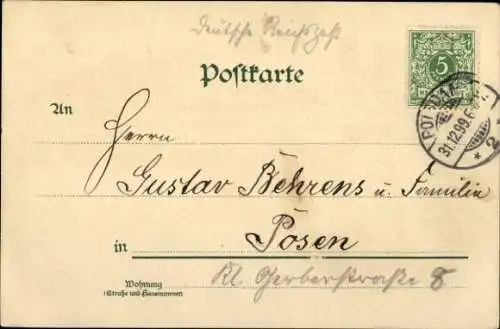 Deutsche Reichspost
5
Postkarte
31.12.99.6
* 2 *
An
Herrn
Gustav Behrens u. Familie
in Posen
Wohnung
(Straße und Hausnummer)
Kl. Gerberstraße 8